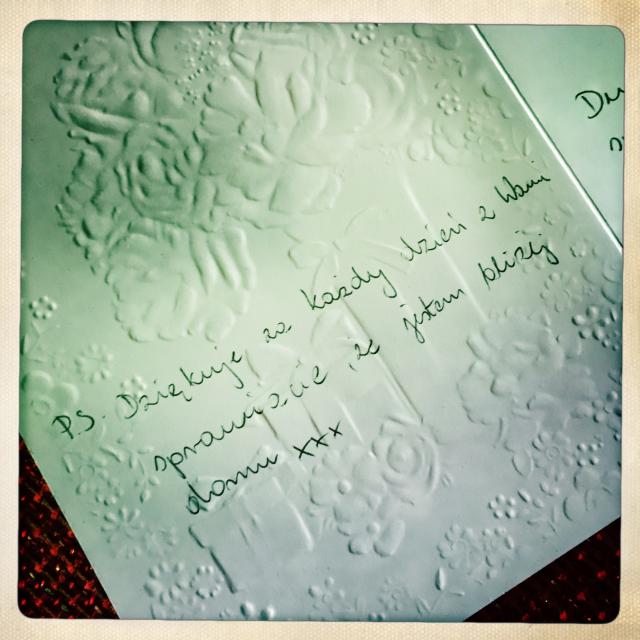 P.S. Dziękuję za każdy dzień z Wami
sprawiacie że jestem bliżej
domu xxx